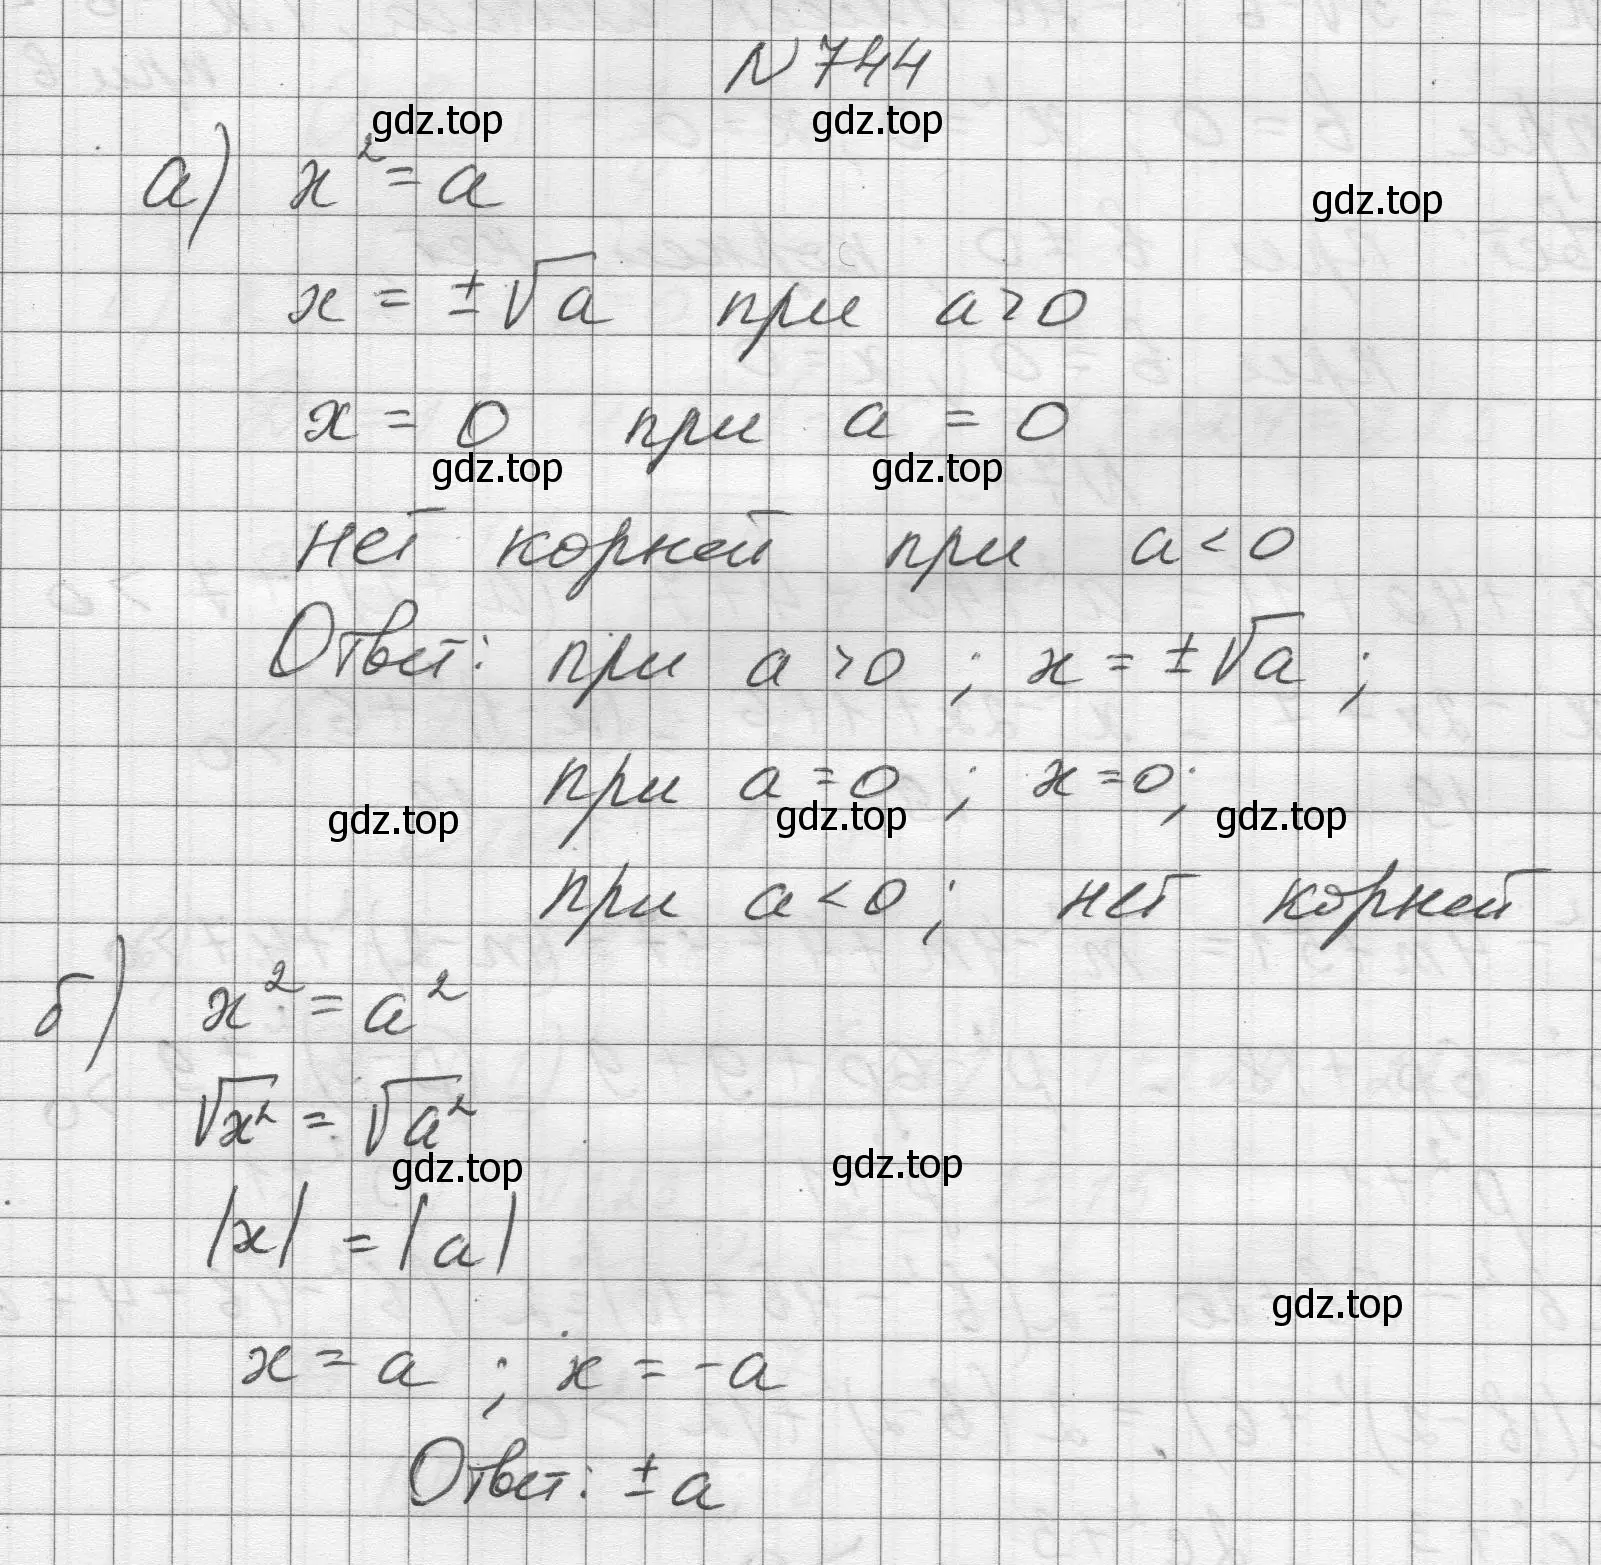 N 744
gdz.top gdz.top
а) x² = a
gdz.top
x = ±√a при a > 0
x = 0 при a = 0
gdz.top gdz.top
нет корней при a < 0
Ответ: при a > 0; x = ±√a;
при a = 0; x = 0;
gdz.top gdz.top gdz.top
при a < 0; нет корней
б) x² = a²
√x² = √a²
gdz.top gdz.top
|x| = |a|
gdz.top
x = a; x = -a
Ответ: ± a